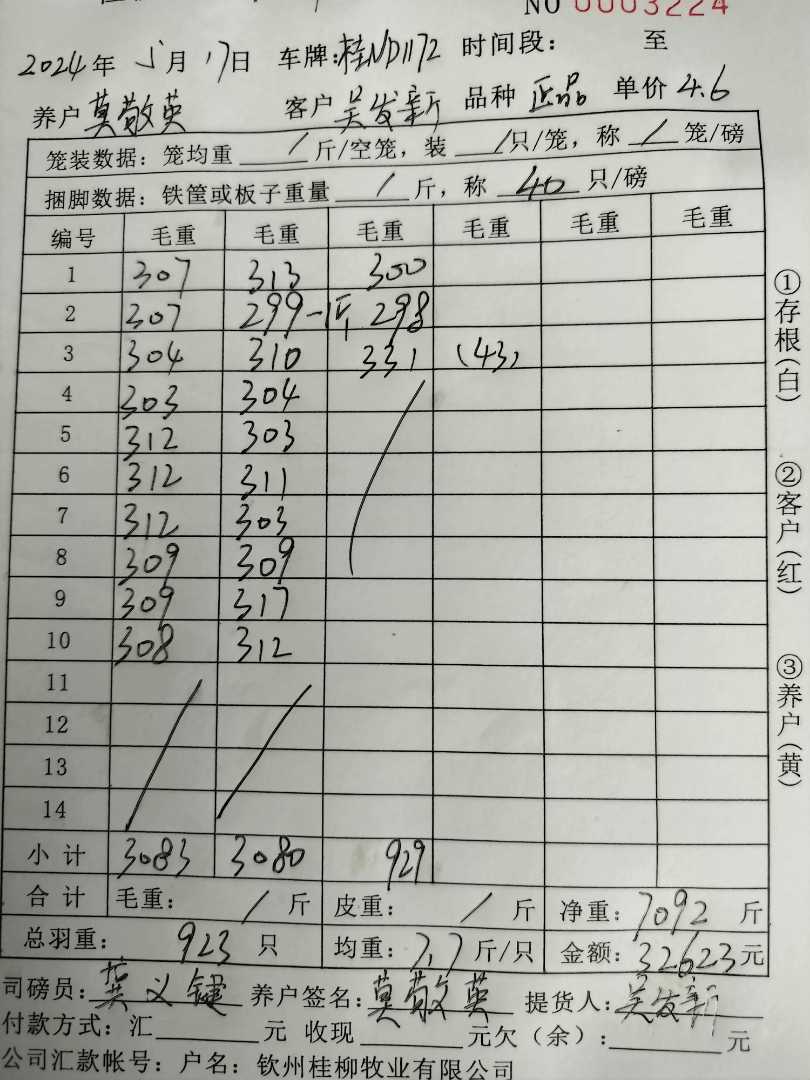 NO 0003224
2024年 5月 17日 车牌:桂ND1172 时间段: 至
养户 莫敬英 客户 吴发新 品种 正品 单价 4.6
笼装数据: 笼均重 / 斤/空笼, 装 / 只/笼, 称 / 笼/磅
捆脚数据: 铁筐或板子重量 / 斤, 称 40 只/磅
编号 毛重 毛重 毛重 毛重 毛重 毛重
1 307 313 300
2 307 299 298
3 304 310 331 (43)
4 303 304
5 312 303
6 312 311
7 312 303
8 309 309
9 309 317
10 308 312
11
12
13
14
小计 3083 3080 929
合计 毛重: / 斤 皮重: / 斤 净重: 7092 斤
总羽重: 923 只 均重: 7.7 斤/只 金额: 32623 元
司磅员: 莫义键 养户签名: 莫敬英 提货人: 吴发新
付款方式: 汇 元 收现 元欠(余): 元
公司汇款帐号: 户名: 钦州桂柳牧业有限公司
①存根(白)
②客户(红)
③养户(黄)